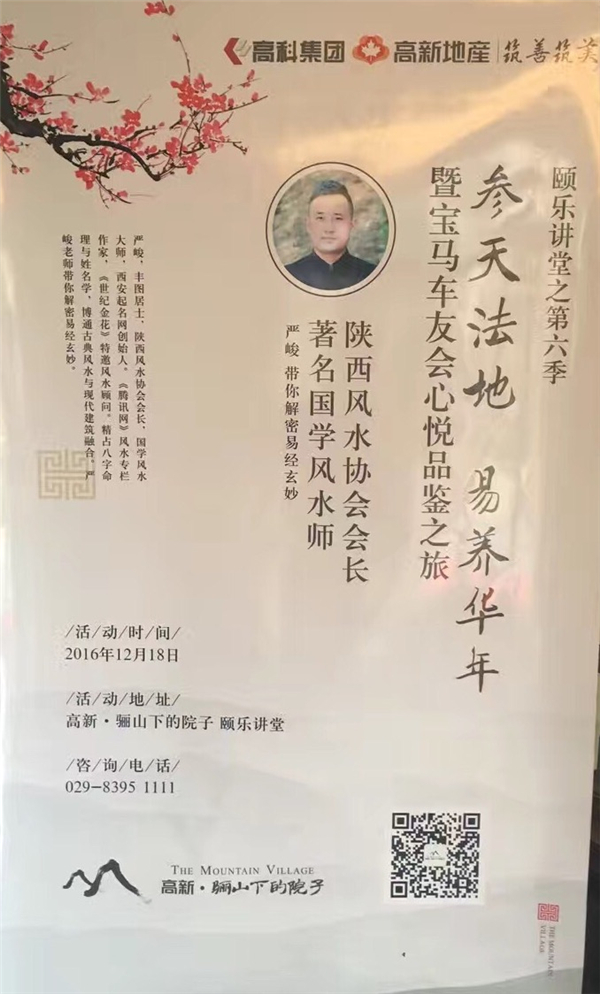 高科集团 高新地产 筑善筑美
颐乐讲堂之第六季
参天法地 易养华年
暨宝马车友会心悦品鉴之旅
陕西风水协会会长
著名国学风水师
严峻 带你解密易经玄妙
严峻，丰图居士，陕西风水协会会长，国学风水
大师，西安起名网创始人。《腾讯网》风水专栏
作家，《世纪金花》特邀风水顾问。精占八字命
理与姓名学，博通古典风水与现代建筑融合。严
峻老师带你解密易经玄妙。
/活/动/时/间/
2016年12月18日
/活/动/地/址/
高新·骊山下的院子 颐乐讲堂
/咨/询/电/话/
029-8395 1111
THE MOUNTAIN VILLAGE
高新·骊山下的院子
THE MOUNTAIN
VILLAGE